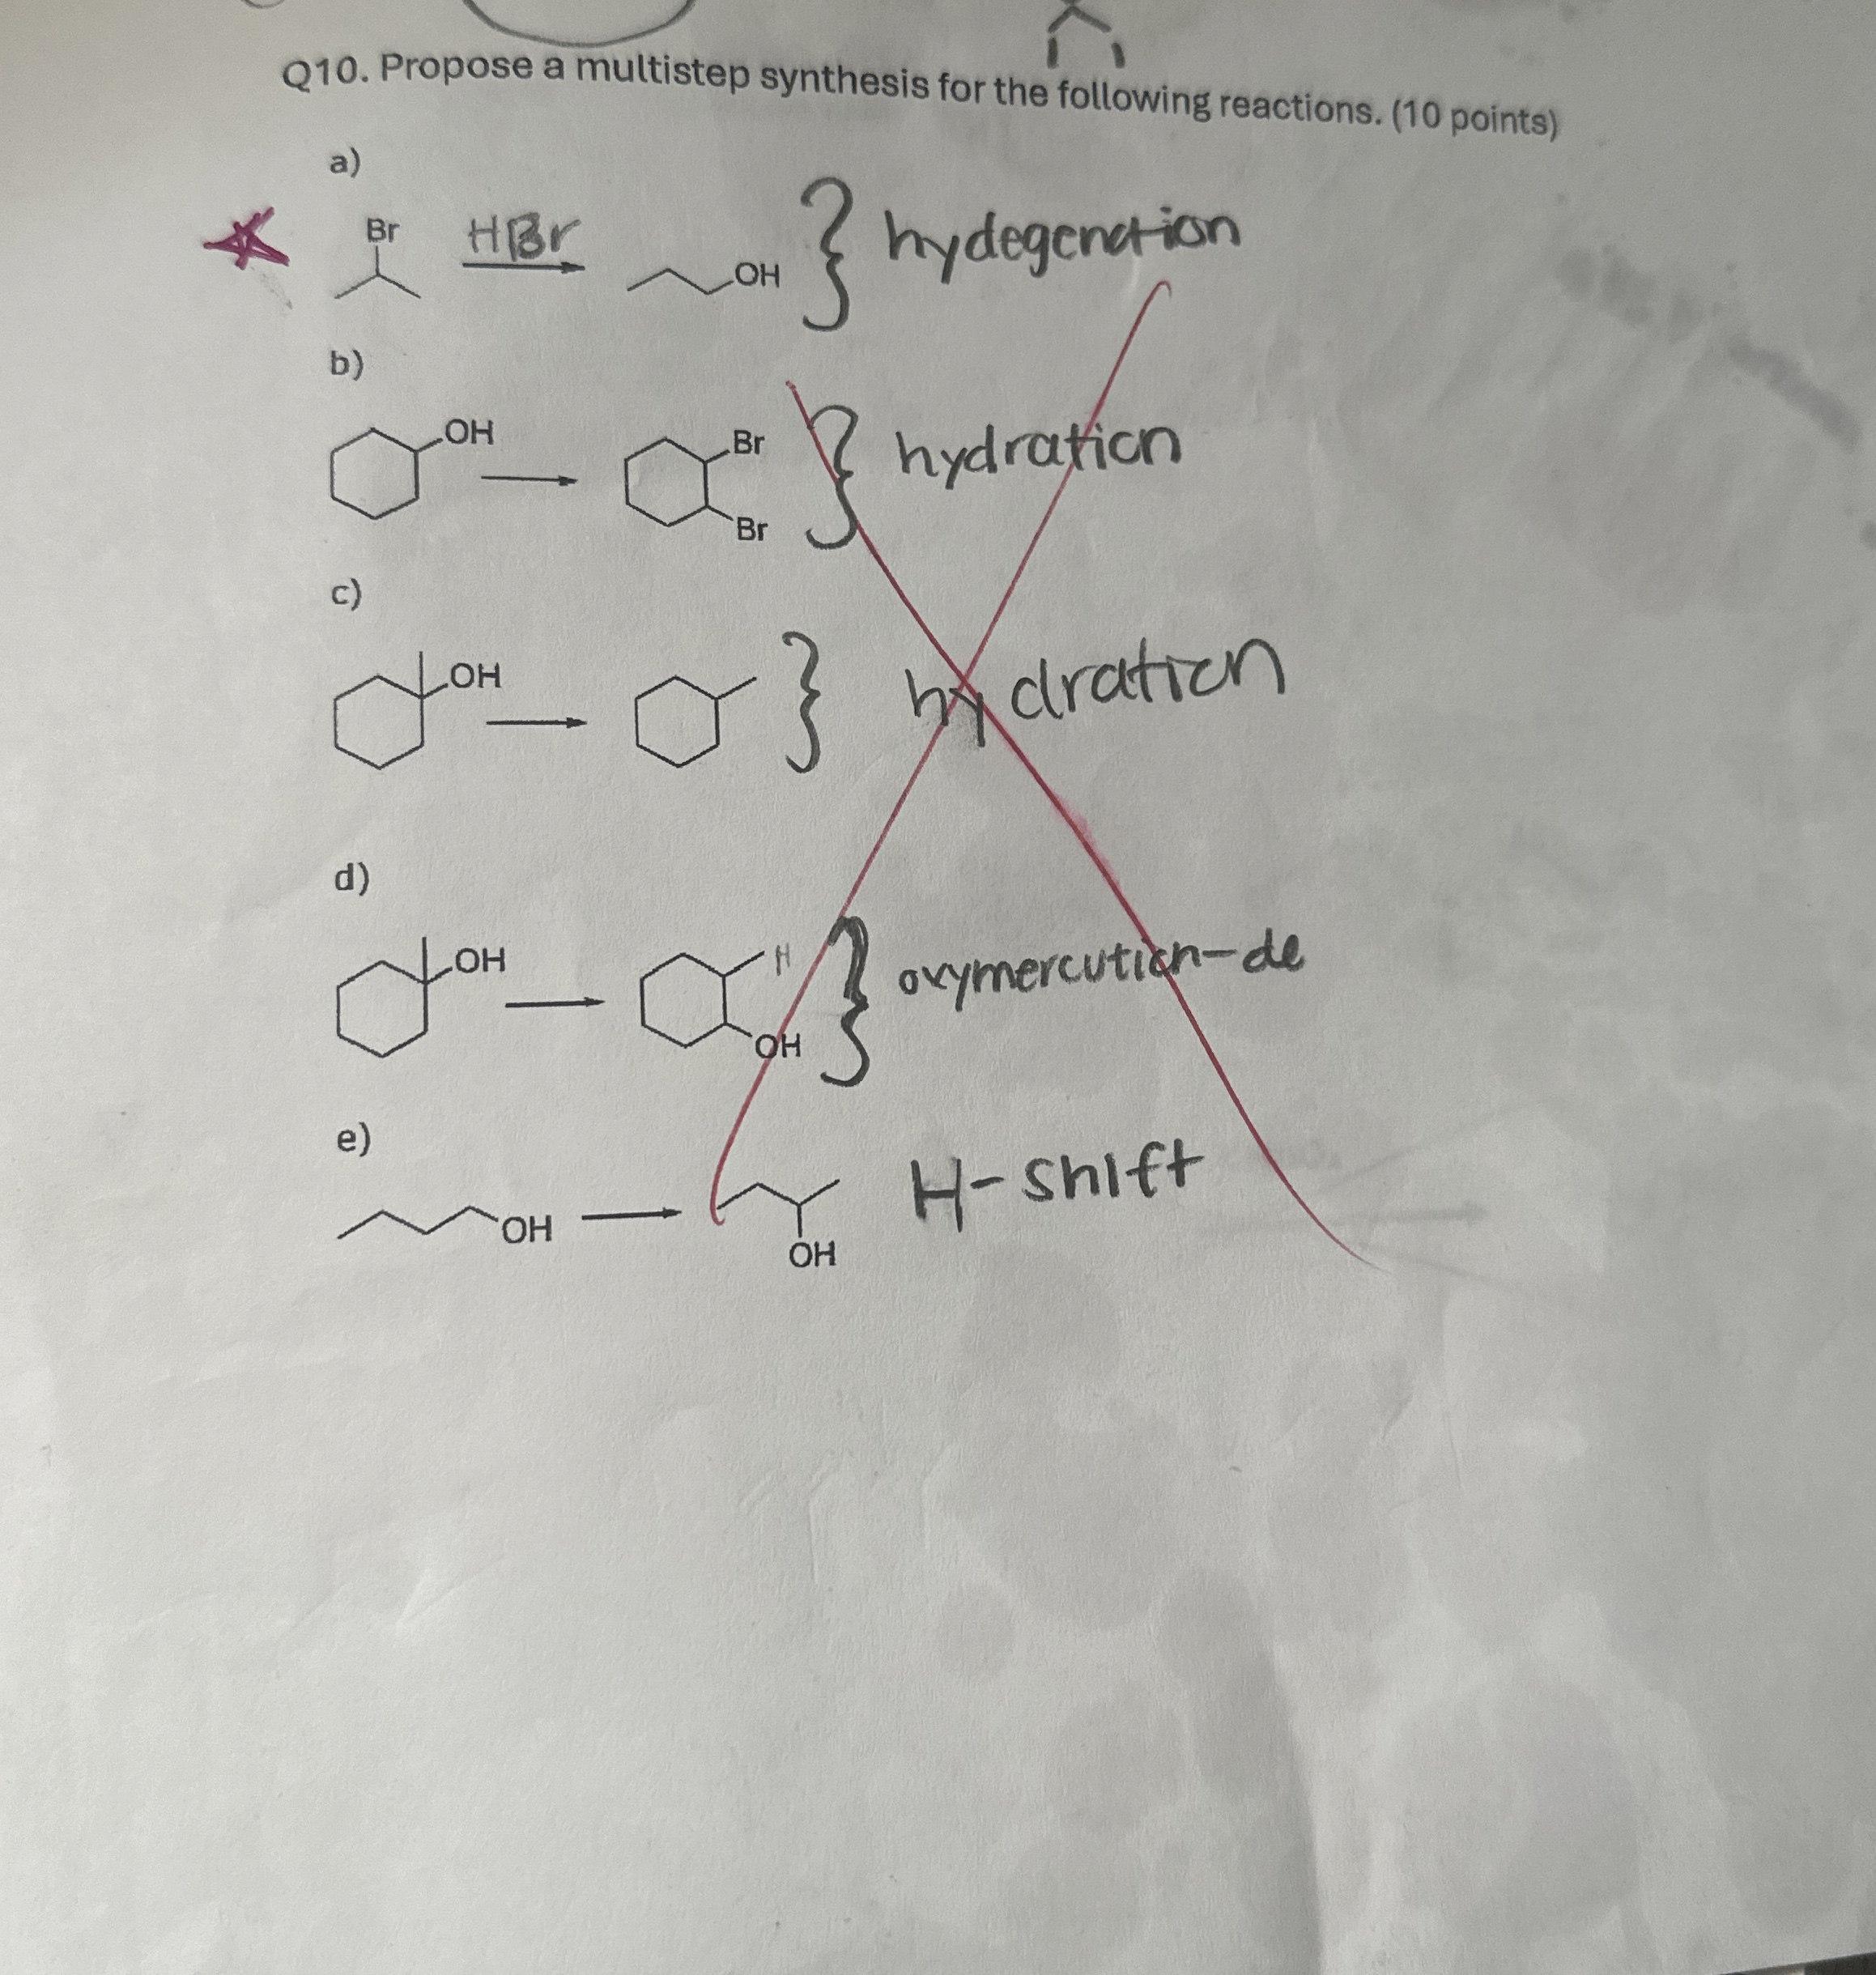 Q10. Propose a multistep synthesis for the following reactions. (10 points)
a)
Br HBr OH hydegenation
b)
OH Br Br hydration
c)
OH hydration
d)
OH H OH oxymercution-de
e)
OH OH H-shift